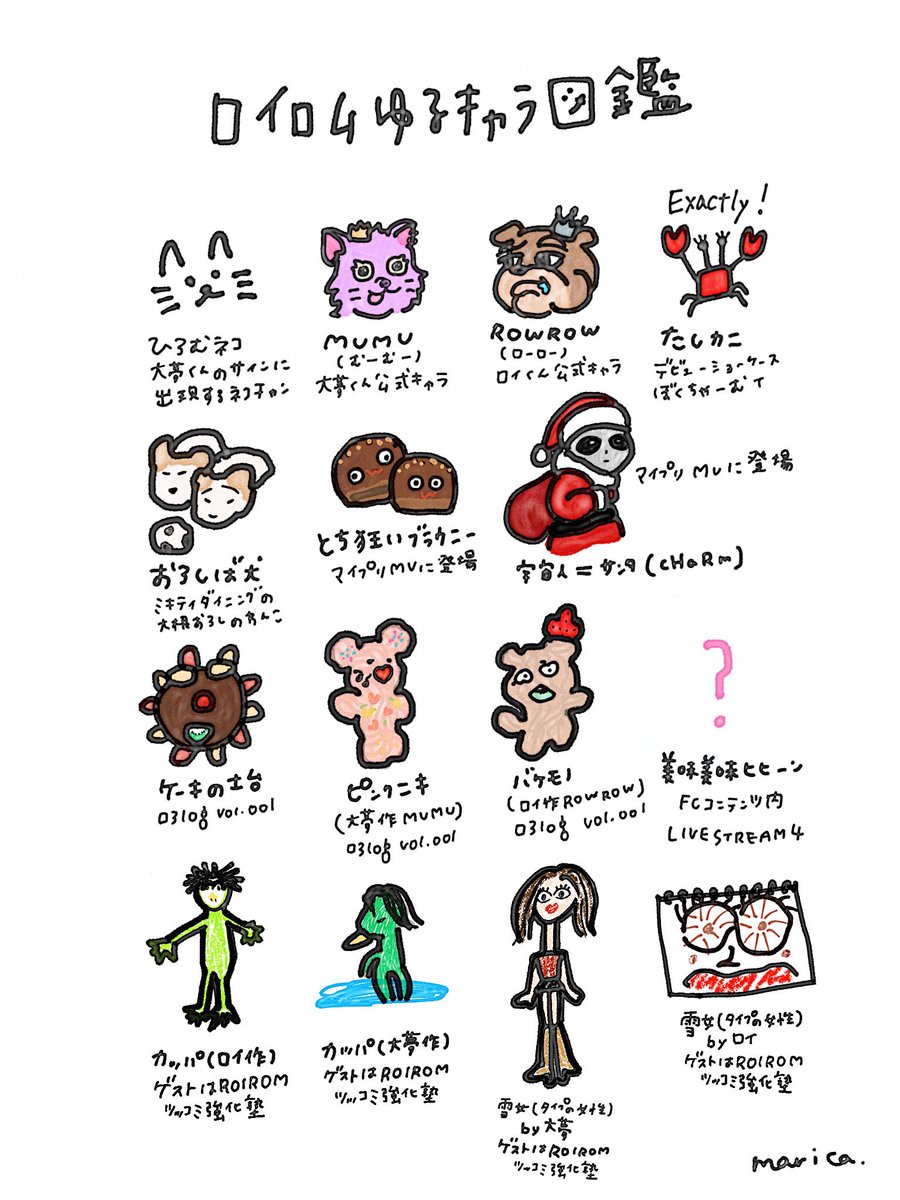 ロイロムゆるキャラ図鑑
Exactly!
ひろむネコ
大夢くんのサインに
出現するネコチャン
MUMU
(むーむー)
大夢くん公式キャラ
ROWROW
(ローロー)
ロイくん公式キャラ
たしカニ
デビューショーケース
ぼくちゃーむて
おろしば犬
ミキティダイニングの
大根おろしのわんこ
とち狂いブラウニー
マイプリMVに登場
マイプリMVに登場
宇宙人=サンタ(CHaRm)
ケーキの土台
ロ3log vol.001
ピンクニキ
(大夢作MUMU)
ロ3log vol.001
バケモノ
(ロイ作ROWROW)
ロ3log vol.001
?
美味美味ヒヒーン
FCコンテンツ内
LIVESTREAM4
カッパ(ロイ作)
ゲストはROIROM
ツッコミ強化塾
カッパ(大夢作)
ゲストはROIROM
ツッコミ強化塾
雪女(タイプの女性)
by大夢
ゲストはROIROM
ツッコミ強化塾
雪女(タイプの女性)
byロイ
ゲストはROIROM
ツッコミ強化塾
marica.